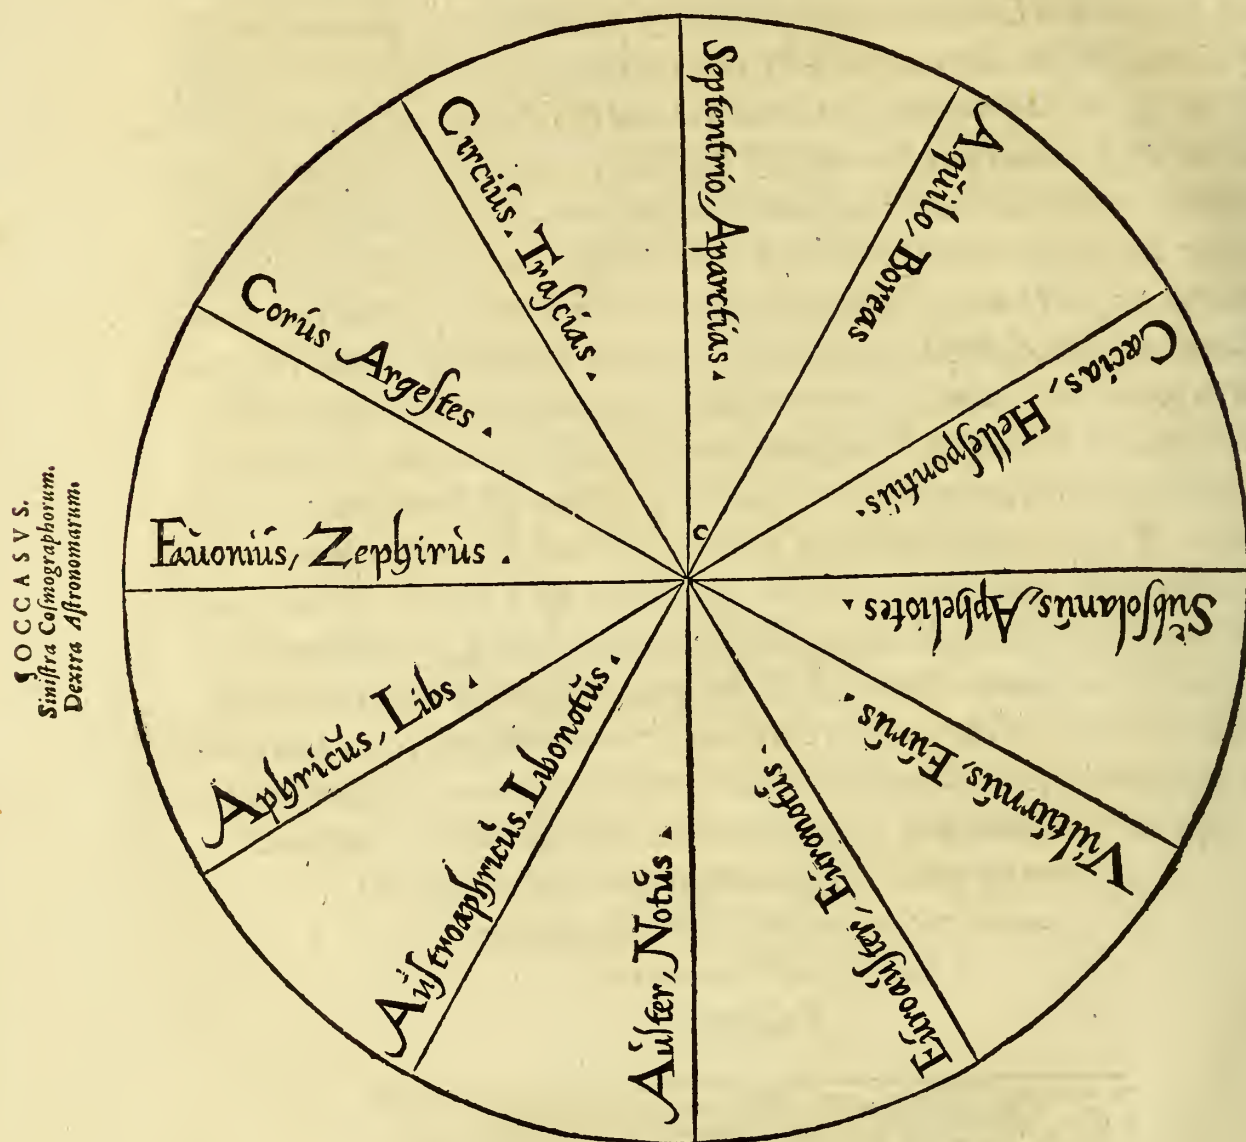 ¶ OCCASVS.
Siniſtra Coſmographorum.
Dextra Aſtronomarum.
Septentrio, Aparctias.
Aquilo, Boreas
Cæcias, Helleſpontiús.
Subſolanús, Apheliotes.
Vultúrnús, Eúrús.
Eúroauſter, Eúronotús.
Aúſter, Notús
Aúſtroaphricús. Libonotús.
Aphricús, Libs.
Faúoniús, Zephirús.
Corús Argeſtes.
Circiús. Traſcias.
c